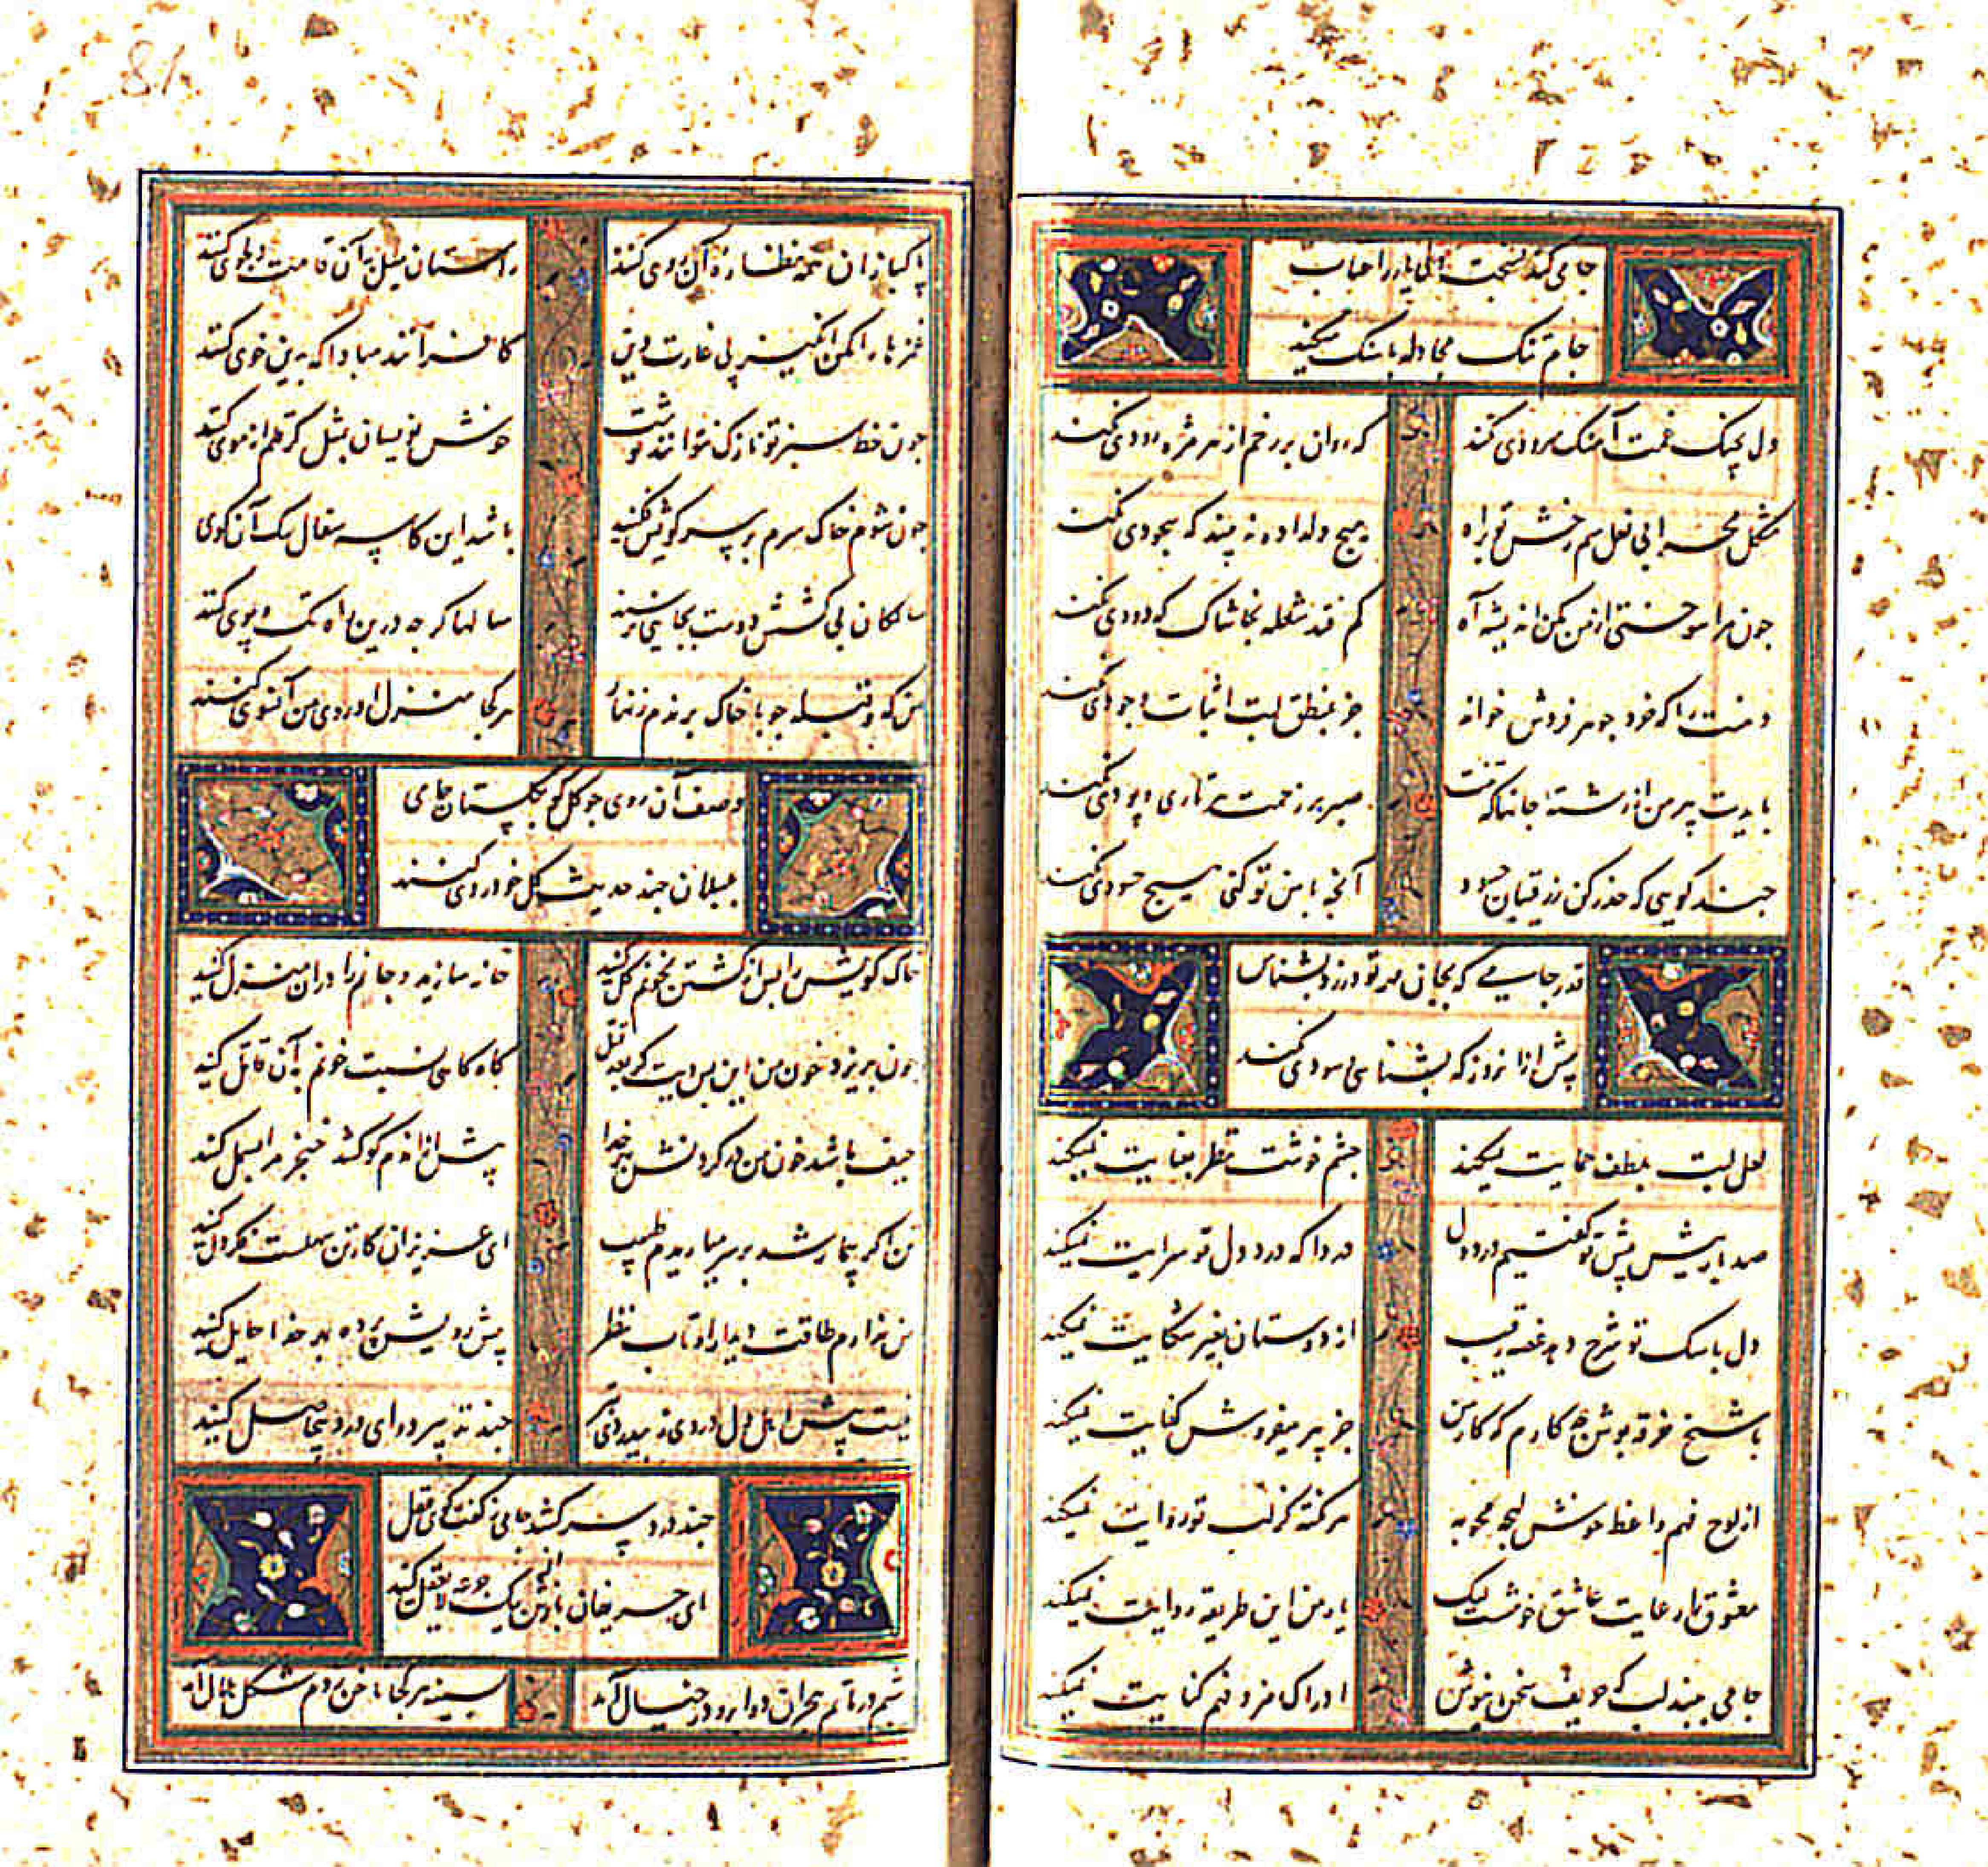 جامی کند نصیحت
جام تنک مجادله با سنک میکند
دل بچنک غمت آهنک سرودی نکند
که روان بر رخم از هر مژه رودی نکند
شکل محرابی نعل سم رخش تو براه
هیچ دلداده نه بیند که سجودی نکند
چون مرا سوختی از من مکن اندیشه آه
کم فتد شعله بخاشاک که دودی نکند
دهنت را که خرد جوهر فردش خواند
جز بمنطق لبت اثبات وجودی نکند
بایدت پیرهن از رشته جانها که تنت
صبر بر زحمت هر تاری و پودی نکند
چند کویی که حذر کن ز رقیبان حسود
آنچه با من تو کنی هیچ حسودی نکند
قدر جامی که بجان مهر تو ورزد بشناس
پیش ازان روز که بشناسی و سودی نکند
لعل لبت بلطف حمایت نمیکند
چشم خوشت نظر بعنایت نمیکند
صد بار بیش پیش تو کفتیم درد دل
دردا که درد دل تو سرایت نمیکند
دل با سک تو شرح دهد غصه رقیب
از دوستان بغیر شکایت نمیکند
با شیخ خرقه پوش چه کارم که کار من
جز پیر میفروش کفایت نمیکند
از لوح فهم واعظ خوش لهجه محو به
هر نکته کز لب تو روایت نمیکند
معشوق را رعایت عاشق خوشست لیک
یار من این طریقه رعایت نمیکند
جامی ببند لب که حریف سخن نیوش
ادراک رمز و فهم کنایت نمیکند
پاکبازان همه نظاره آن روی کنند
راستان میل به آن قامت دلجوی کنند
غمزه‌ها را مکن انکیز پی غارت دین
کافرانند مبادا که بدین خوی کنند
چون خط سبز تو نازک نتوانند نوشت
خوش نویسان بمثل کر قلم از موی کنند
چون شوم خاک سرم بر سر کویش فکنید
باشد این کاسه سفال سک آن کوی کنند
سالکان بی کشش دوست بجایی نرسند
سالها کرچه درین راه تک و پوی کنند
من که و قبله چو با خاک برندم زنهار
هر کجا منزل او روی من آنسوی کنند
وصف آن روی چو کل کو بکلستان جامی
بلبلان چند حدیث کل خودروی کنند
خاک کویش را پس از کشتن بخونم کل کنید
خانه سازید و جانم را دران منزل کنید
چون بریزد خون من این بس دیت کز بعد قتل
کاه کاهی نسبت خونم به آن قاتل کنید
حیف باشد خون من در کردنش بهر خدا
پیش ازان دم کو کشد خنجر مرا بسمل کنید
تن اکر بیمار شد بر سر میاریدم طبیب
ای عزیزان کار تن سهلست فکر دل کنید
من ندارم طاقت دیدار او تاب نظر
پیش رویش پرده بهر خدا حایل کنید
نیست پیش اهل دل دردی ز بیدردی بتر
چند تدبیر دوای درد بیحاصل کنید
چند درد سر کشد جامی ز کفت و کوی عقل
ای حریفان باز من یک جرعه لایعقل کنید
شبم در ماتم هجران